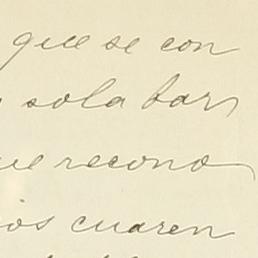 que se con
sola bar
ue recono
ios cuaren